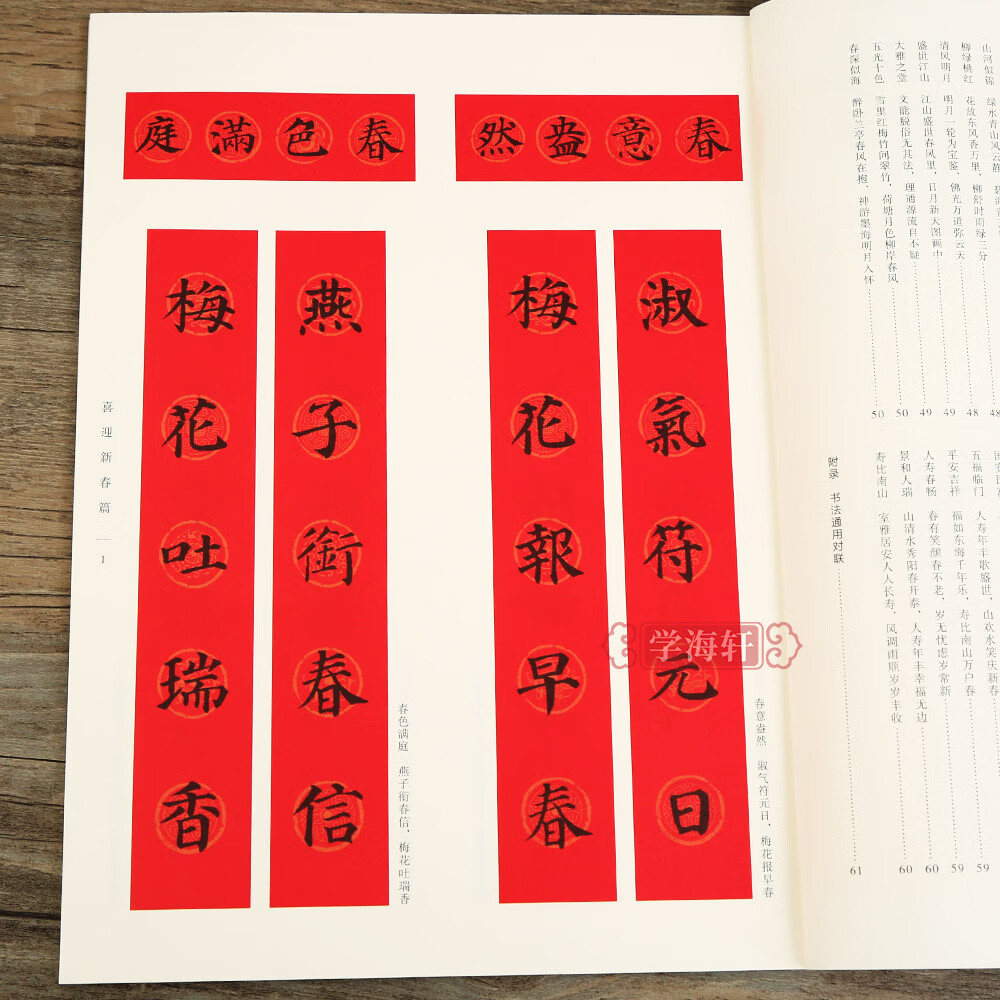 春意盎然
淑氣符元日
梅花報早春
春意盎然 淑气符元日，梅花报早春
春色滿庭
燕子銜春信
梅花吐瑞香
春色满庭 燕子衔春信，梅花吐瑞香
喜迎新春篇 — 1
学海轩
山河似锦 绿水青山风云静，碧海
柳绿桃红 花放东风香万里，柳舒时雨绿三分 48
清风明月 明月一轮为宝鉴，佛光万道弥云天 48
盛世江山 江山盛世春风里，日月新天图画中 49
大雅之堂 文能脱俗无其法，理通源流自不疑 49
五光十色 雪里红梅竹间翠竹，荷塘月色柳岸春风 50
春深似海 醉卧兰亭春风在抱，神游墨海明月入怀 50
五福临门 人寿年丰歌盛世，山欢水笑庆新春
平安吉祥 福如东海千年乐，寿比南山万户春 59
人寿春畅 春有笑颜春不老，岁无忧虑岁常新 59
景和人瑞 山清水秀阳春开泰，人寿年丰幸福无边 60
寿比南山 室雅居安人人长寿，风调雨顺岁岁丰收 60
附录 书法通用对联 61